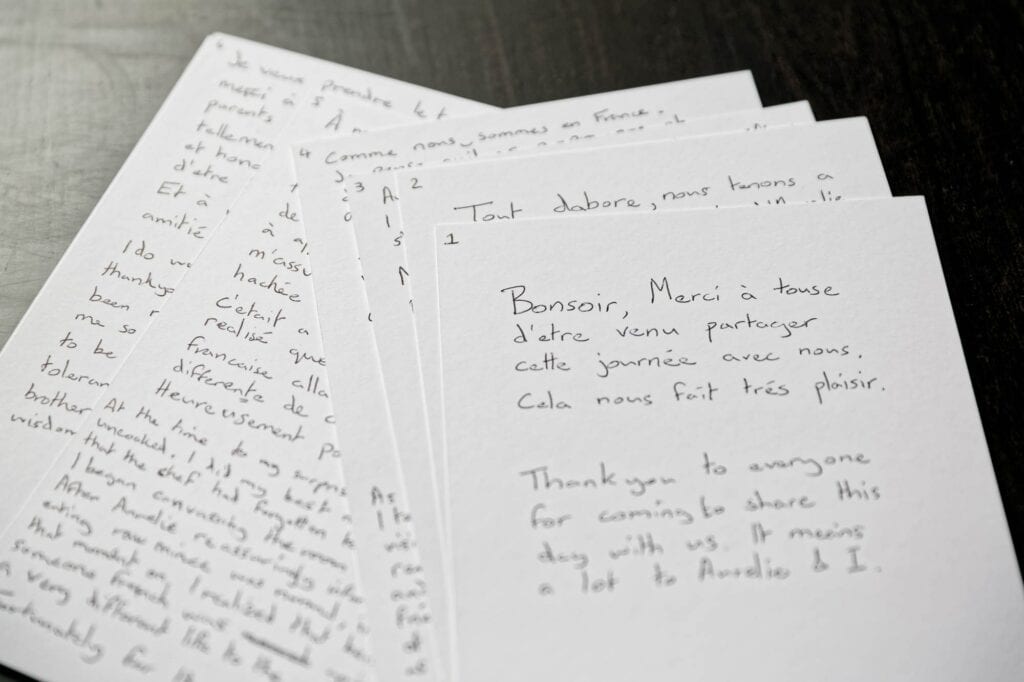 1
Bonsoir, Merci à touse
d'etre venu partager
cette journée avec nous.
Cela nous fait trés plaisir.
Thankyou to everyone
for coming to share this
day with us. It means
a lot to Aurelie & I.
2
Tout dabore, nous tenons a
3
As
4
Comme nous sommes en France.
5
À
de
à
m'assu
hachée
C'était a
realisé que
francaise alla
differente de c
Heureusement po
At the time to my surpris
uncooked. I did my best
that the chef had forgotten to
I began convincing the room
After Aurelie reassuringly
eating raw mince was normal,
that moment on, I realised that
someone french was
a very different life to the
Fortunately for
Je veux prendre le t
merci à
parents
tellemen
et hono
d'etre
Et à
amitié
I do w
thankyo
been
me so
to be
toleran
brother
wisdom